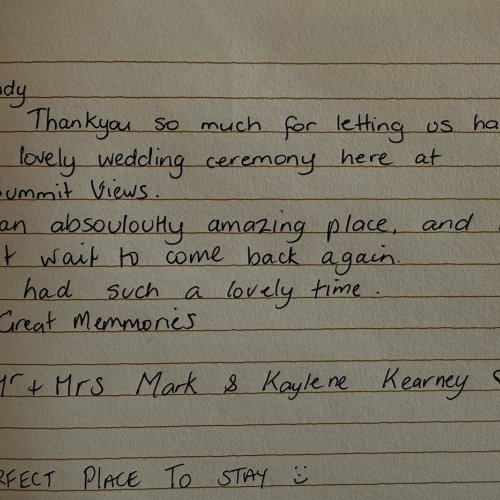 dy
Thankyou so much for letting us ha
lovely wedding ceremony here at
Summit Views.
an absouloutly amazing place, and
t wait to come back again.
had such a lovely time.
Great Memmories
Mr + Mrs Mark & Kaylene Kearney
RFECT PLACE TO STAY :)